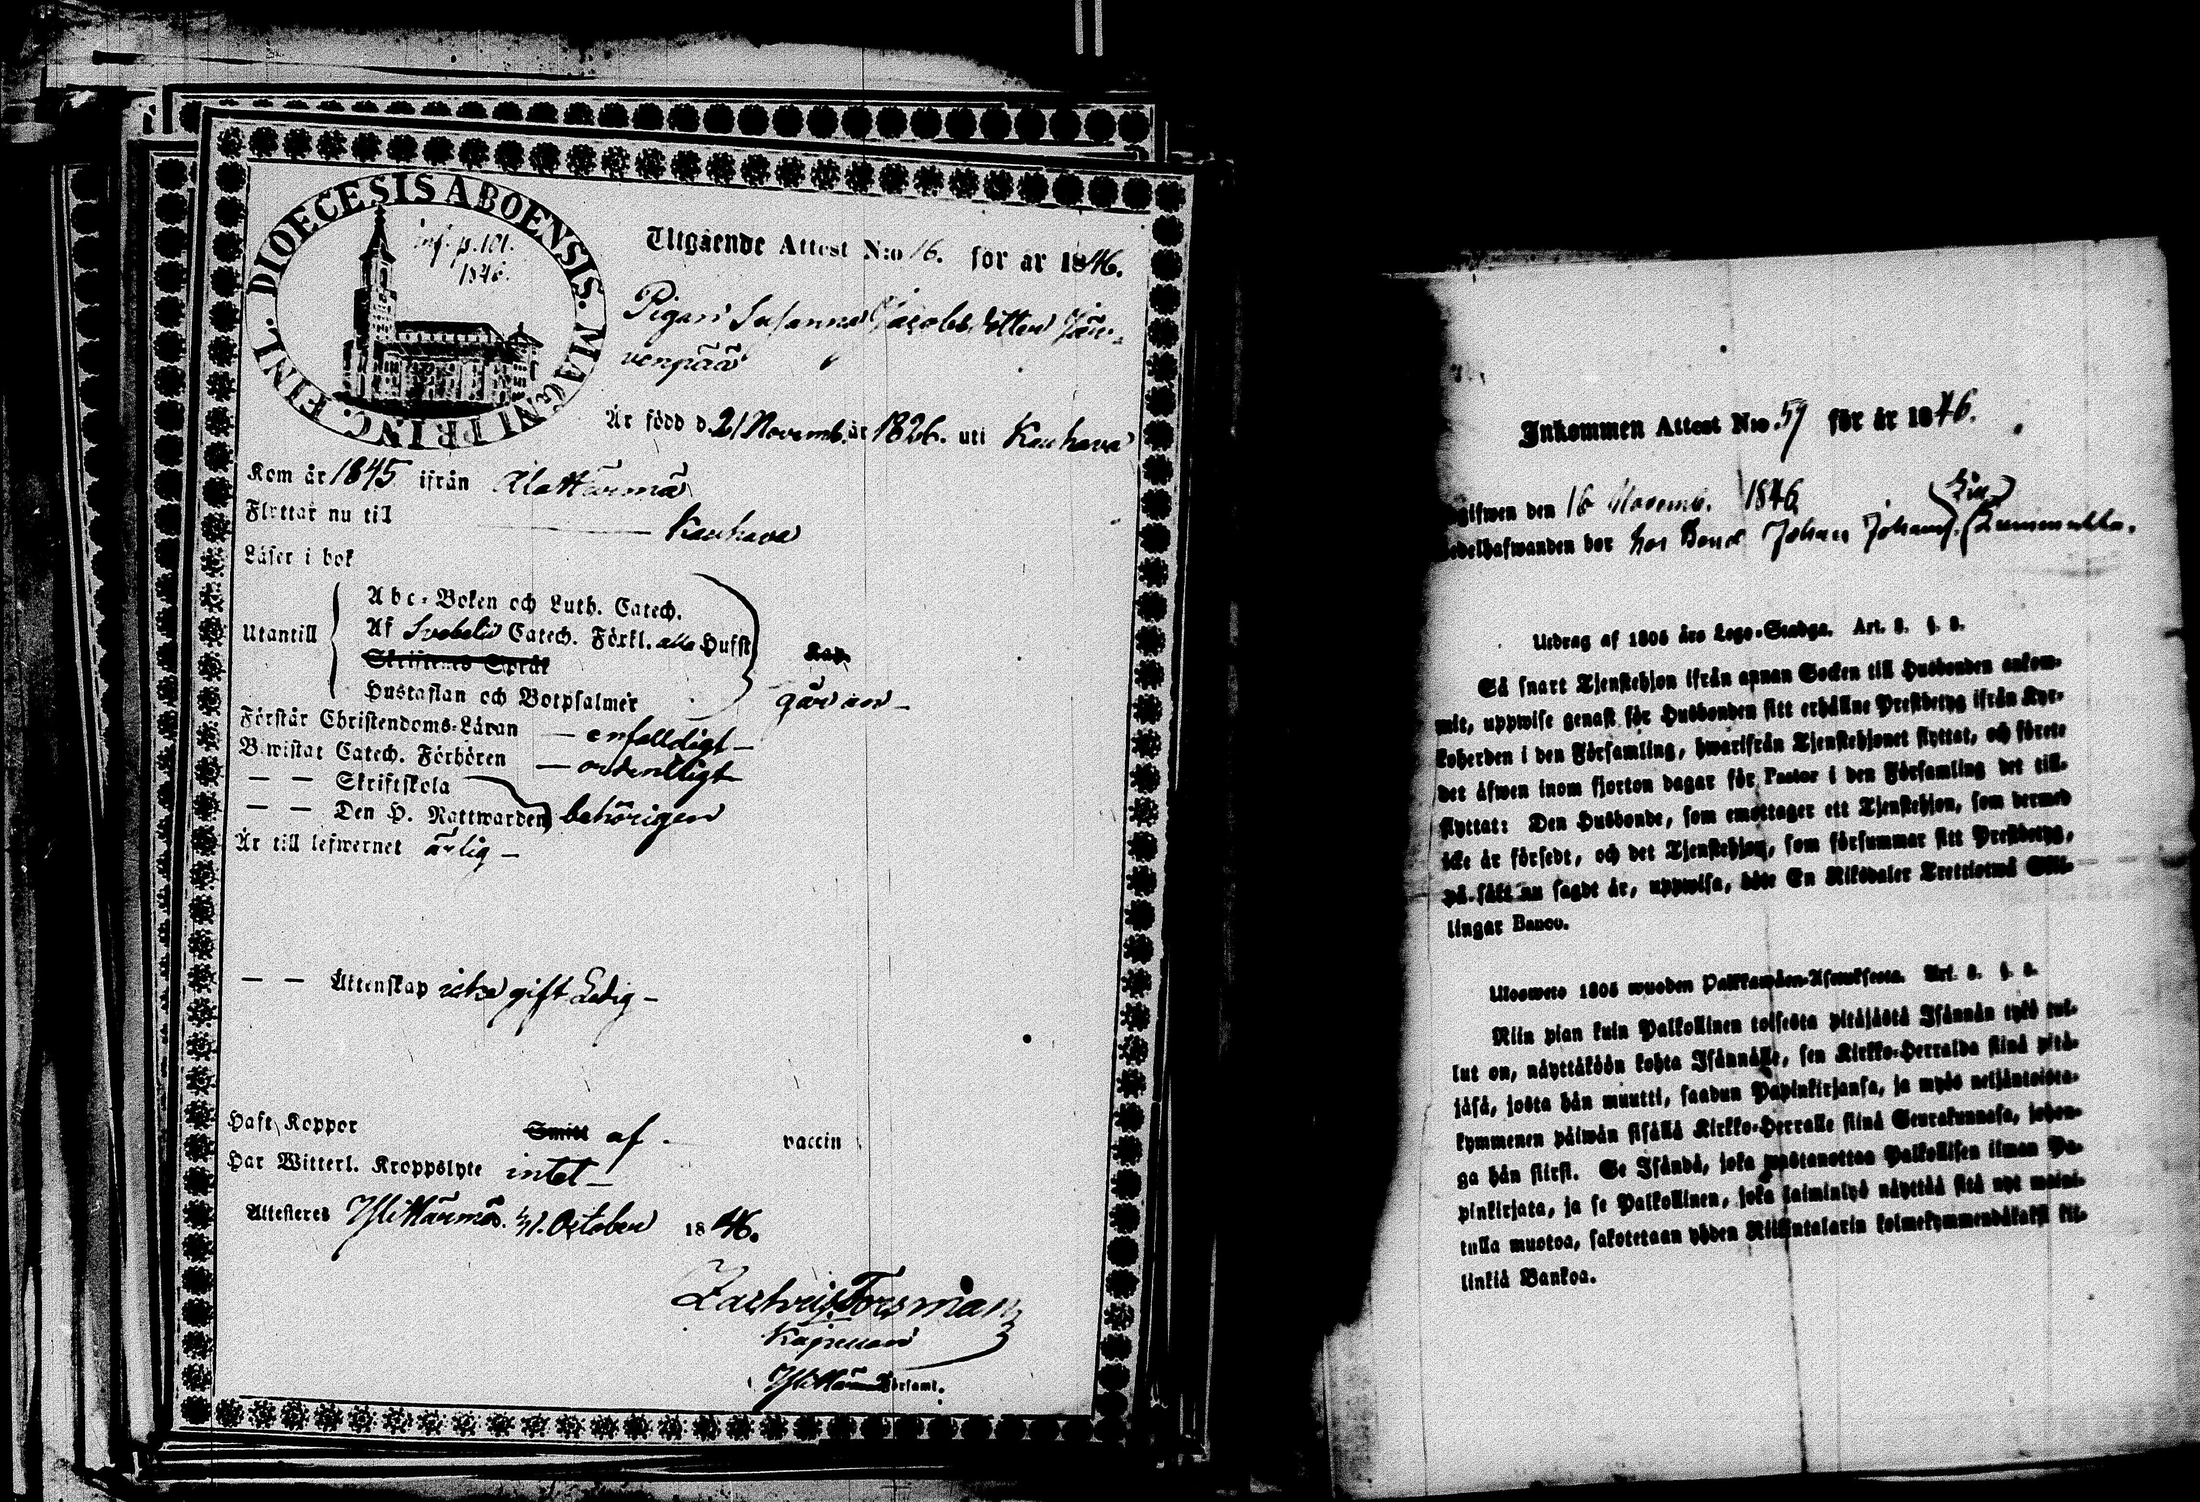 DIOECESIS ABOENSIS. MAGNI PRINC. FINL.
inf. p. 101.
1846.
Utgående Attest N:o 16. för år 1846.
Pigan Susanna Jacobsdotter Jär-
venpää
Är född d. 21 Novemb. år 1826. uti Kauhava
Kom år 1845 ifrån Alahärmä
Flyttar nu till — Kauhava
Läser i bok
Utantill
Abc-Boken och Luth. Catech.
Af Svebelii Catech. Förkl. alla Hufst.
Skriftenes Språk
Hustaflan och Botpsalmer
går an —
Förstår Christendoms-Läran — enfaldigt —
Bewistat Catech. Förhören — ordentligt
— — Skriftskola
— — Den H. Nattwarden behörigen
Är till lefwernet ärlig —
— — Äktenskap icke gift Ledig —
Haft Koppor Smitt af — vaccin
Har Witterl. Kroppslyte intet —
Attesteres Ylihärmä. October 1846.
Zachris Forsman
Kapellan
Ylihärmä Församl.
Inkommen Attest N:o 59 för år 1846.
den 16 Novemb. 1846
bor hos Bond Johan Johans.
Utdrag af 1805 års Lego-Stadga. Art. 3. §. 3.
Så snart Tjenstehjon ifrån annan Socken till Husbonden ankom-
mit, uppwise genast för Husbonden sitt erhållne Prestbetyg ifrån Kyr-
koherden i den Församling, hwarifrån Tjenstehjonet flyttat, och förete
det äfwen inom fjorton dagar för Pastor i den Församling det till-
flyttat: Den Husbonde, som emottager ett Tjenstehjon, som dermed
icke är försedt, och det Tjenstehjon, som försummar sitt Prestbetyg,
på sätt nu sagdt är, uppwisa, böte En Riksdaler Trettiotwå Skil-
lingar Banco.
Ulosweto 1805 wuoden Palkkawäen-Asetuksesta. Art. 3. §. 3.
Niin pian kuin Palkollinen toisesta pitäjästä Isännän tykö tul-
lut on, näyttäköön kohta Isännälle, sen Kirkko-Herralda siinä pitä-
jäsä, josta hän muutti, saadun Papinkirjansa, ja myös neljäntoista-
kymmenen päiwän sisällä Kirkko-Herralle siinä Seurakunnasa, johon-
ga hän siirsi. Se Isändä, joka wastanottaa Palkollisen ilman Pa-
pinkirjata, ja se Palkollinen, joka laiminlyö näyttää sitä nyt maini-
tulla muotoa, sakotetaan yhden Riikintalarin kolmekymmendäkaksi kil-
linkiä Bankoa.